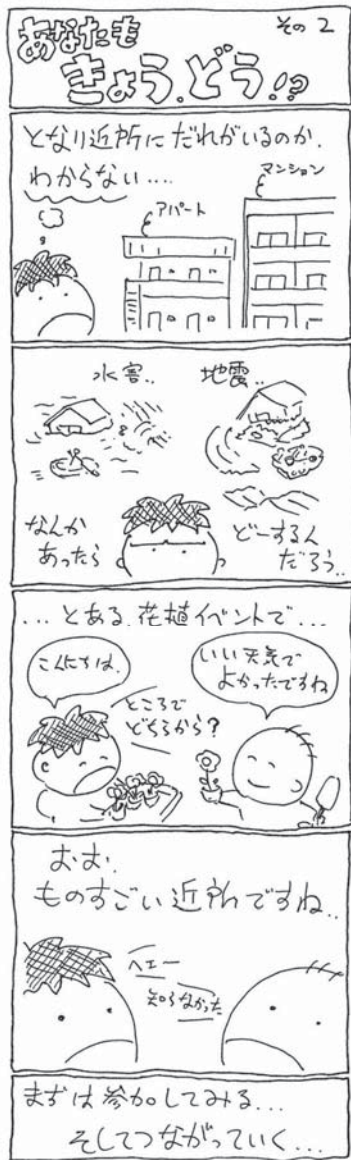 その2
あなたも
きょう、どう!?
となり近所にだれがいるのか、
わからない....
アパート
マンション
水害..
地震..
なんか
あったら
どーするん
だろう..
...とある、花植イベントで...
こんにちは、
いい天気で
よかったですね
ところで
どちらから?
おお、
ものすごい近所ですね..
ヘエー
知らなかった
まずは参加してみる...
そしてつながっていく...